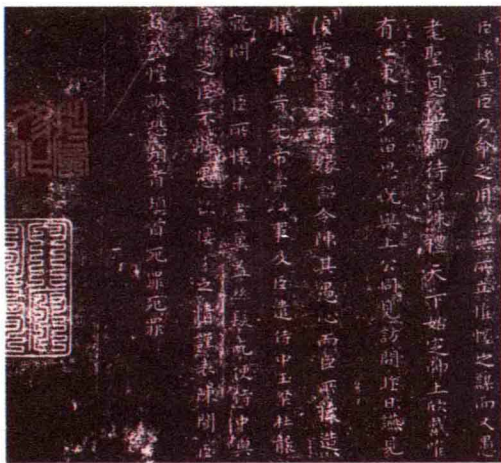 臣繇言臣力命之用以無所立帷幄之謀而又愚
耄聖恩低徊待以殊禮天下始定帥土欣戴唯
有江東當少留思既與上公同見訪問昨日疏見
復蒙逮及雖緣詔令陳其愚心而臣所懷造
膝之事昔先帝嘗以事及臣遣侍中王粲杜襲
就問臣所懷未盡奏益絲髮乞使侍中與
臣議之臣不勝愚款悾悾之情謹表以聞臣
繇誠惶誠恐頓首頓首死罪死罪